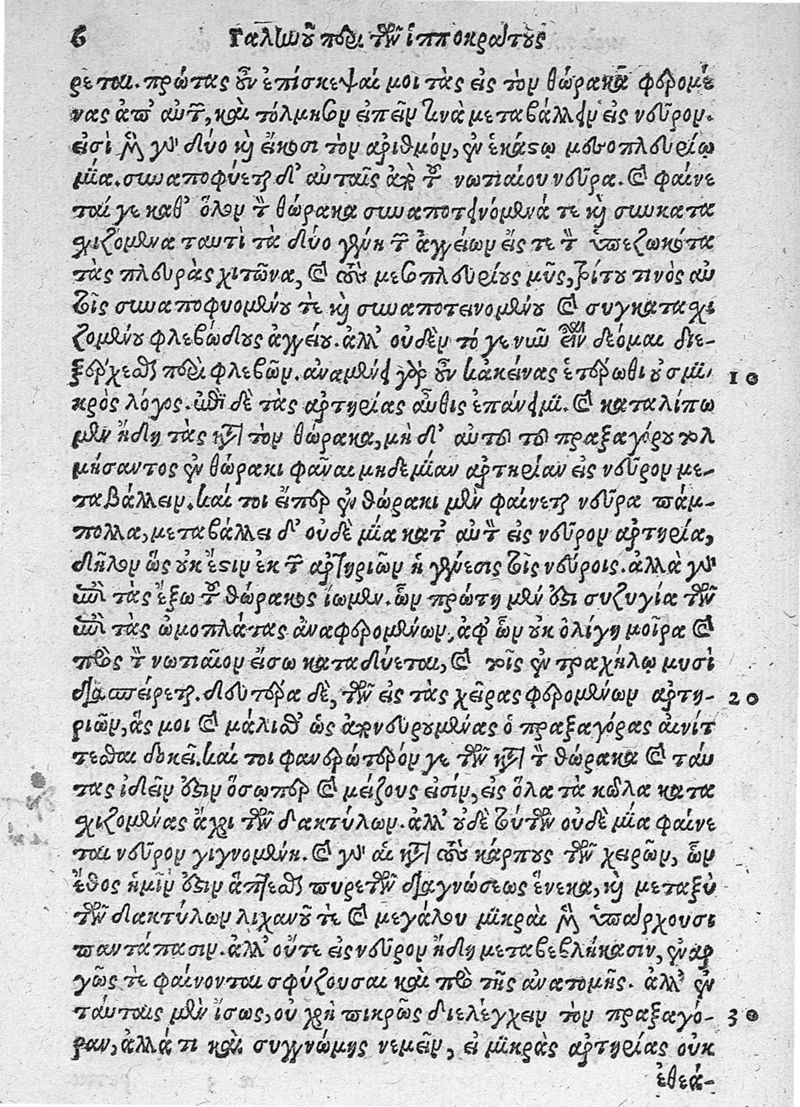 6 Γαληνοῦ περὶ τῶν ἱπποκράτους
ρεται. πρώτας οὖν ἐπίσκεψαί μοι τὰς εἰς τὸν θώρακα φερομέ
νας ἀπ' αὐτῆς, καὶ τόλμησον εἰπεῖν τινὰ μεταβάλλειν εἰς νεῦρον.
εἰσὶ μὲν γε δύο καὶ εἴκοσι τὸν ἀριθμὸν, ἐν ἑκάστῳ μεσοπλευρίῳ
μία. συναποφύεται δ' αὐταῖς ἀπὸ τοῦ νωτιαίου νεῦρα. καὶ φαίνε
ταί γε καθ' ὅλον τὸν θώρακα συναποτεινόμενά τε καὶ συγκατα
σχιζόμενα ταυτὶ τὰ δύο γένη τῶν ἀγγείων εἴς τε τὸν ὑπεζωκότα
τὰς πλευρὰς χιτῶνα, καὶ τοὺς μεσοπλευρίους μῦς, τρίτου τινὸς αὐ
τοῖς συναποφυομένου τὲ καὶ συναποτεινομένου καὶ συγκατασχι
ζομένου φλεβώδους ἀγγείου. ἀλλ' οὐδὲν τό γε νῦν εἶναι δέομαι διε-
ξέρχεσθαι περὶ φλεβῶν. ἀναμένει γὰρ οὖν κἀκείνας ἑτέρωθι οὐ σμι-
κρὸς λόγος. ἐπὶ δὲ τὰς ἀρτηρίας αὖθις ἐπάνειμι. καὶ καταλίπω 10
μὲν ἤδη τὰς κατὰ τὸν θώρακα, μὴ δ' αὐτοῦ τοῦ πραξαγόρου τολ
μήσαντος ἐν θώρακι φᾶναι μηδεμίαν ἀρτηρίαν εἰς νεῦρον με-
ταβάλλειν. καί τοι εἴπερ ἐν θώρακι μὲν φαίνεται νεῦρα πάμ-
πολλα, μεταβάλλει δ' οὐδὲ μία κατ' αὐτὸν εἰς νεῦρον ἀρτηρία,
δῆλον ὡς οὐκ ἔστιν ἐκ τῶν ἀρτηριῶν ἡ γένεσις τοῖς νεύροις. ἀλλὰ γε
ἐπὶ τὰς ἔξω τοῦ θώρακος ἴωμεν. ὧν πρώτη μὲν ἐστι συζυγία τῶν
ἐπὶ τὰς ὠμοπλάτας ἀναφερομένων, ἀφ' ὧν οὐκ ὀλίγη μοῖρα καὶ
πρὸς τὸν νωτιαῖον εἴσω καταδύεται, καὶ τοῖς ἐν τραχήλῳ μυσὶ
διασπείρεται. δευτέρα δὲ, τῶν εἰς τὰς χεῖρας φερομένων ἀρτη- 20
ριῶν, ἅς μοι καὶ μάλισθ' ὡς ἀπονευρουμένας ὁ πραξαγόρας αἰνίτ
τεσθαι δοκεῖ. καί τοι φανερώτερόν γε τῶν κατὰ τὸν θώρακα καὶ ταύ
τας ἰδεῖν ἐστιν ὅσωπερ καὶ μείζους εἰσὶν, εἰς ὅλα τὰ κῶλα κατα
σχιζομένας ἄχρι τῶν δακτύλων. ἀλλ' οὐδὲ τούτων οὐδὲ μία φαίνε
ται νεῦρον γιγνομένη. καὶ γε αἱ κατὰ τοὺς κάρπους τῶν χειρῶν, ὧν
ἔθος ἡμῖν ἐστιν ἅπτεσθαι πυρετῶν διαγνώσεως ἕνεκα, καὶ μεταξὺ
τῶν δακτύλων λιχανοῦ τὲ καὶ μεγάλου μικραὶ μὲν ὑπάρχουσι
παντάπασιν. ἀλλ' οὔτε εἰς νεῦρον ἤδη μεταβεβλήκασιν, ἐναρ
γῶς τὲ φαίνονται σφύζουσαι καὶ πρὸ τῆς ἀνατομῆς. ἀλλ' ἐν
ταύταις μὲν ἴσως, οὐ χρὴ πικρῶς διελέγχειν τὸν πραξαγό- 30
ραν, ἀλλά τι καὶ συγγνώμης νεμεῖν, εἰ μικρὰς ἀρτηρίας οὐκ
ἐθεά-